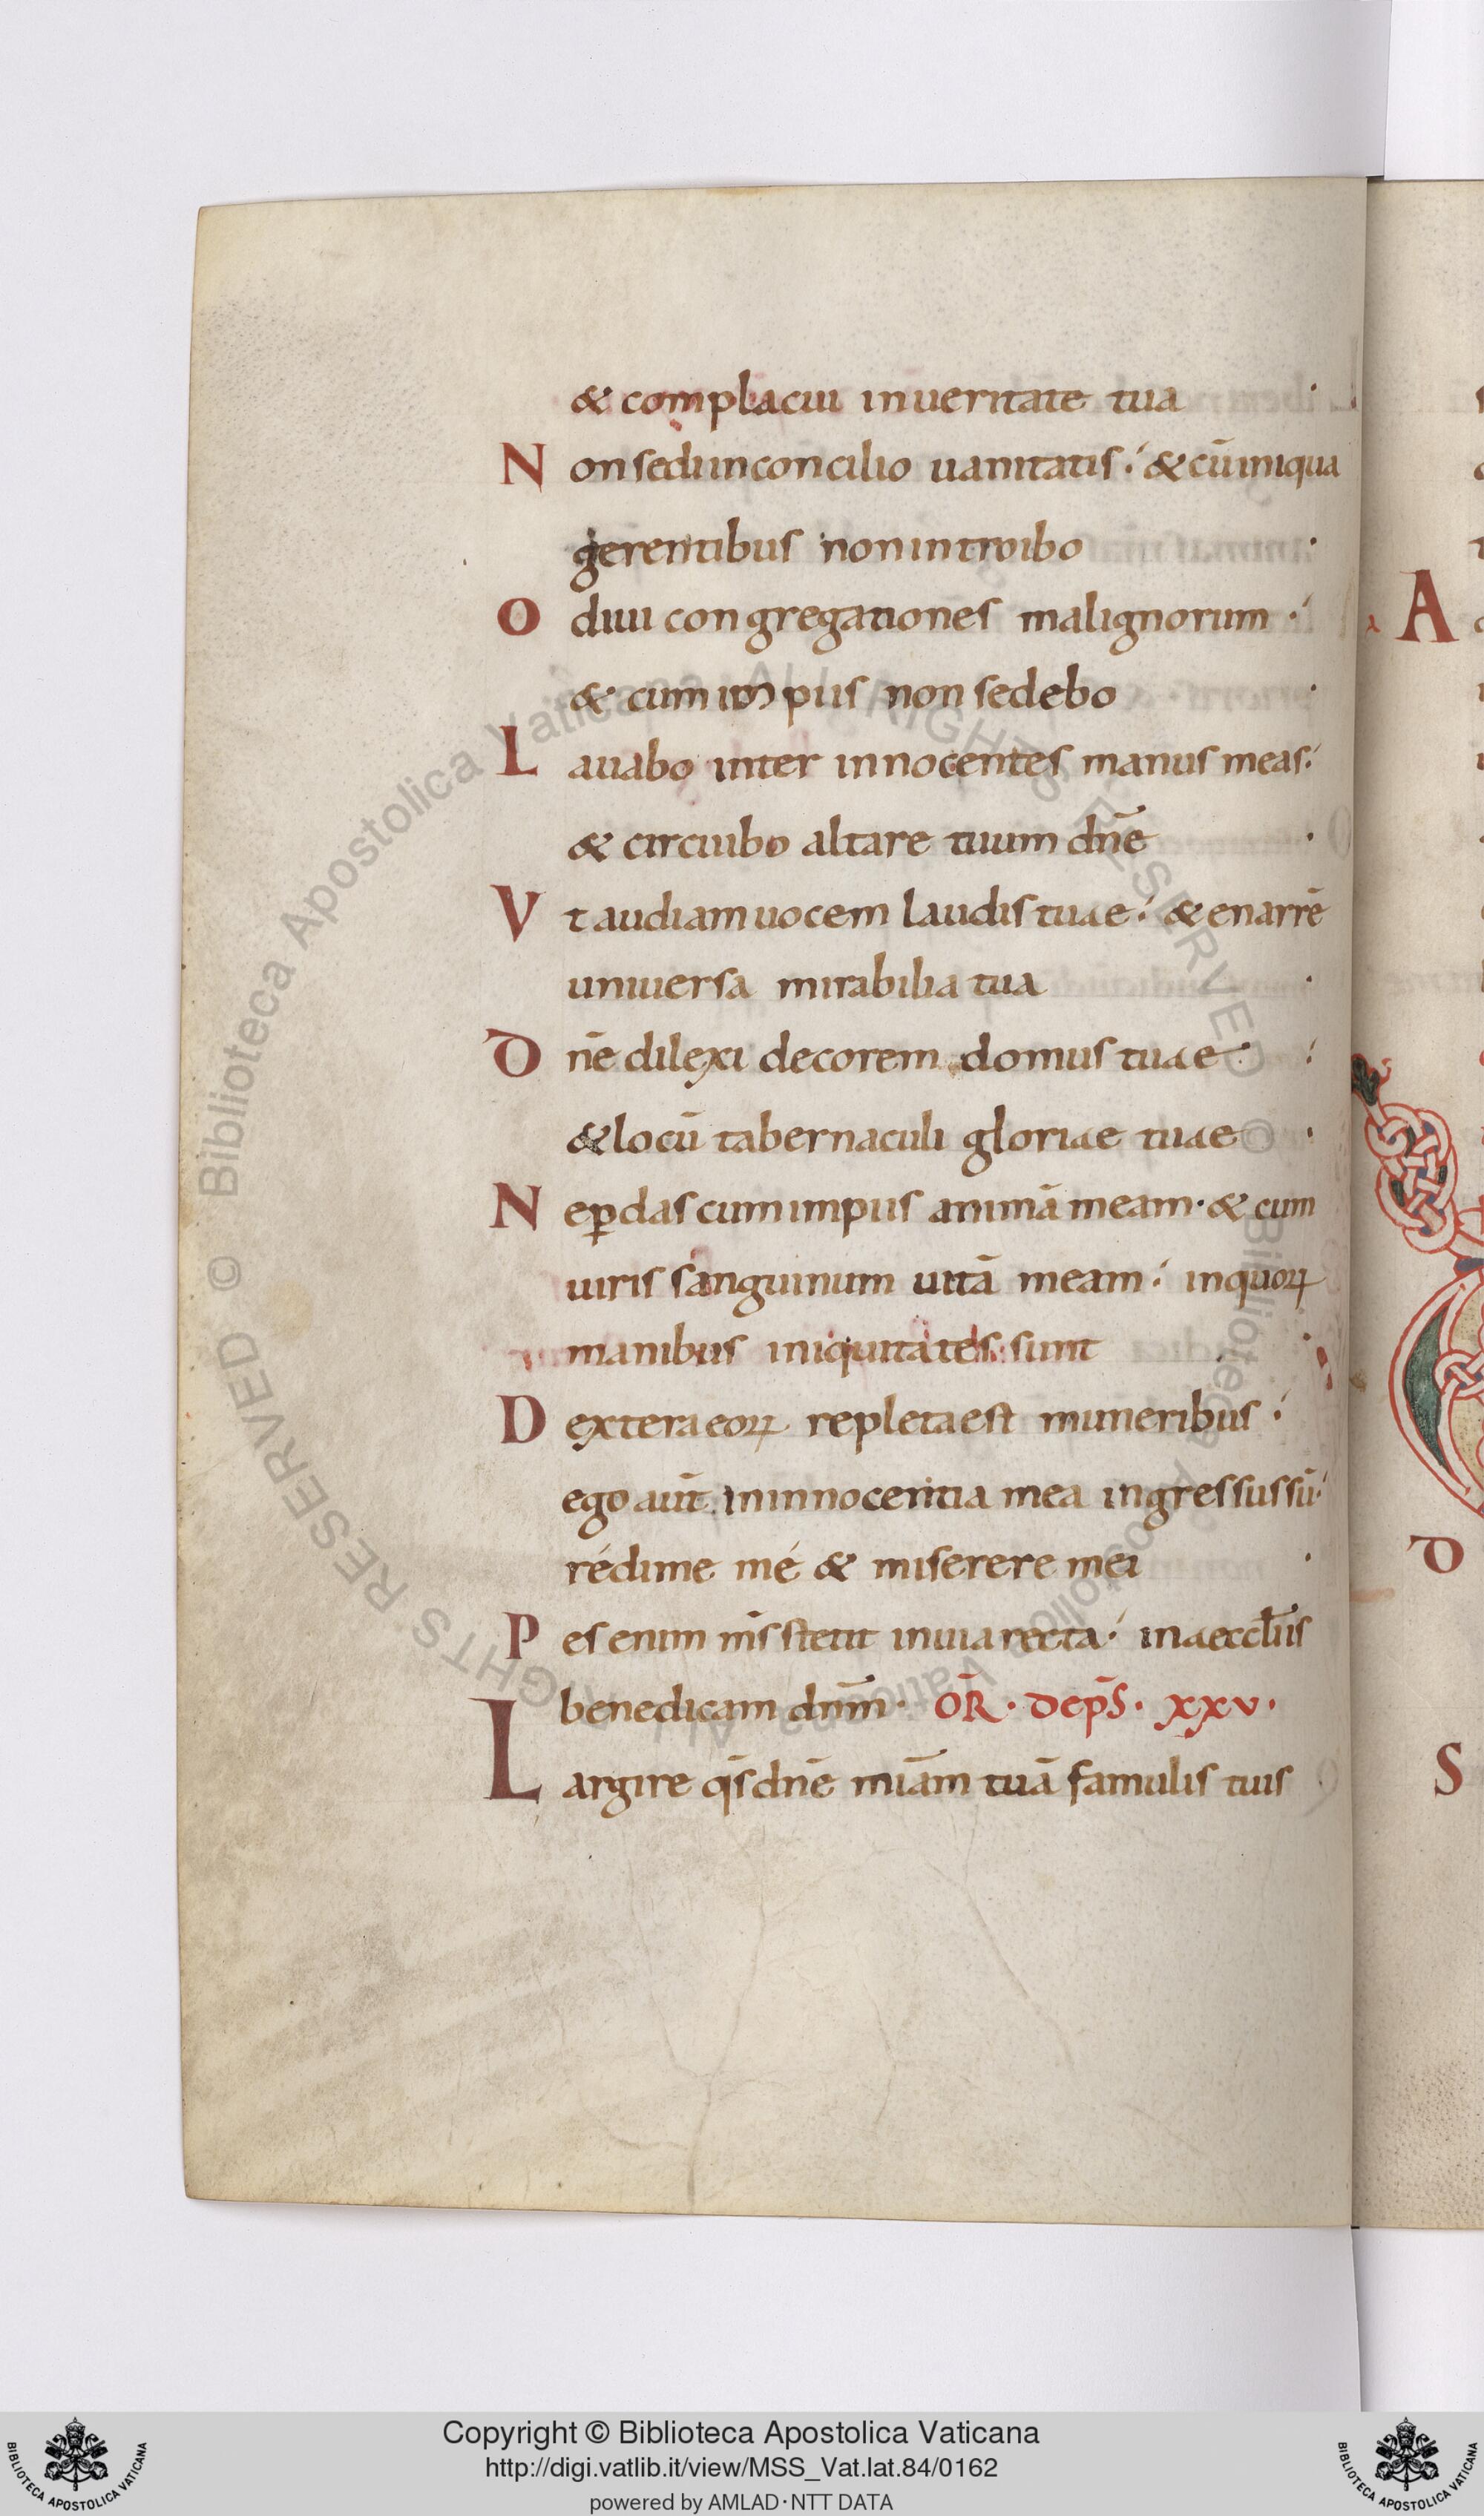 & complacui in ueritate tua ·
Non sedi in concilio uanitatis : & cū iniqua
gerentibus non introibo ·
Odiui congregationes malignorum :
& cum impiis non sedebo ·
Lauabo inter innocentes manus meas :
& circuibo altare tuum dn̄e ·
Vt audiam uocem laudis tuae : & enarrē
uniuersa mirabilia tua ·
Dn̄e dilexi decorem domus tuae :
& locū tabernaculi gloriae tuae ·
Ne ꝑdas cum impiis animā meam · & cum
uiris sanguinum uitā meam : in quoꝝ
manibus iniquitates sunt ·
Dextera eoꝝ repleta est muneribus :
ego aūt in innocentia mea ingressus sū ·
rédime mé & miserere mei ·
Pes enim m̄s stetit in uia recta : in aeccl̄iis
benedicam dn̄m · OR̄ · DE PS̄ · XXV ·
Largire qs̄ dn̄e miām tuā famulis tuis
A
D
S
© Biblioteca Apostolica Vaticana ALL RIGHTS RESERVED
Copyright © Biblioteca Apostolica Vaticana
http://digi.vatlib.it/view/MSS_Vat.lat.84/0162
powered by AMLAD · NTT DATA
BIBLIOTECA APOSTOLICA VATICANA
BIBLIOTECA APOSTOLICA VATICANA